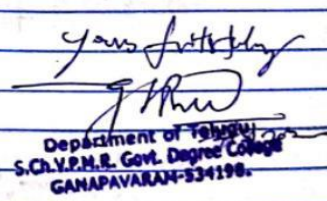 Yours faithfully
Department of Telugu
S.Ch.V.P.M.R. Govt. Degree College
GANAPAVARAM-534198.